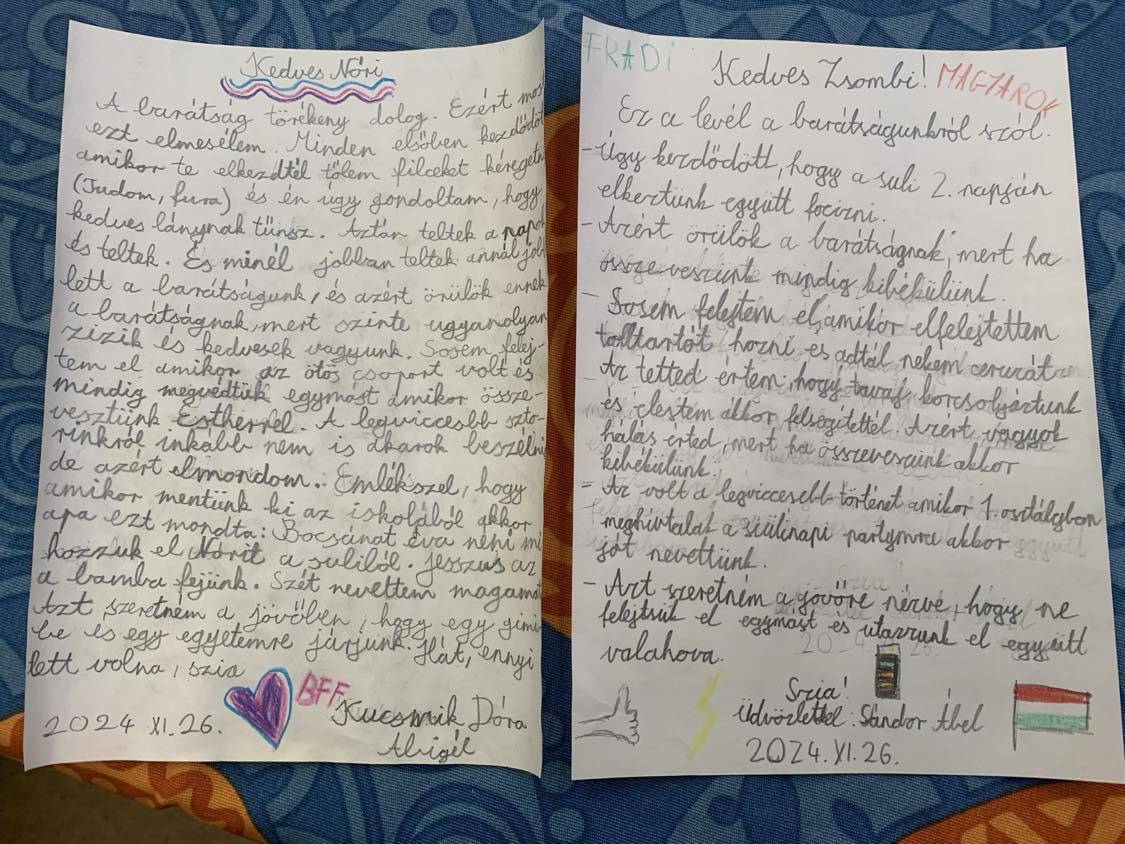 Kedves Nóri
A barátság törékeny dolog. Ezért mos
ezt elmesélem. Minden elsőben kezdődöt
amikor te elkezdtél tőlem filceket kéregetn
(Tudom, fura) és én úgy gondoltam, hogy
kedves lánynak tűnsz. Aztán teltek a napok
és teltek. És minél jobban teltek annál job
lett a barátságunk, és azért örülök ennek
a barátságnak, mert szinte ugyanolyan
zizik és kedvesek vagyunk. Sosem felej-
tem el amikor az ötös csoport volt és
mindig megvédtük egymást amikor össze-
vesztünk Estherrel. A legviccesebb szto-
rinkról inkább nem is akarok beszélni
de azért elmondom. Emlékszel, hogy
amikor mentünk ki az iskolából akkor
apa ezt mondta: Bocsánat éva néni mi
hozzuk el Nórit a suliból. Jesszus az
a bamba fejünk. Szét nevettem magamat
Azt szeretném a jövőben, hogy egy gimi
be és egy egyetemre járjunk. Hát, ennyi
lett volna, szia
BFF
Kucsmik Dóra
Abigél
2024. XI. 26.
FRADI
Kedves Zsombi! MAGYAROK
Ez a levél a barátságunkról szól.
- Úgy kezdődött, hogy a suli 2. napján
elkertünk együtt focizni.
- Azért örülök a barátságnak, mert ha
össze veszünk mindig kibékülünk.
- Sosem felejtem el, amikor elfelejtettem
tolltartót hozni, és adtál nekem ceruzát
Az tetted értem, hogy tavaj korcsolyáztunk
és elestem akkor felsegítettél. Azért vagyok
hálás érted, mert ha összeveszünk akkor
kibékülünk.
- Az volt a legviccesebb történet amikor 1. osztályban
meghívtalak a szülinapi partymra akkor
jót nevettünk.
- Azt szeretném a jövőre nézve, hogy ne
felejtsük el egymást és utazzunk el együtt
valahova.
Szia!
Üdvözlettel: Sándor Ábel
2024. XI. 26.